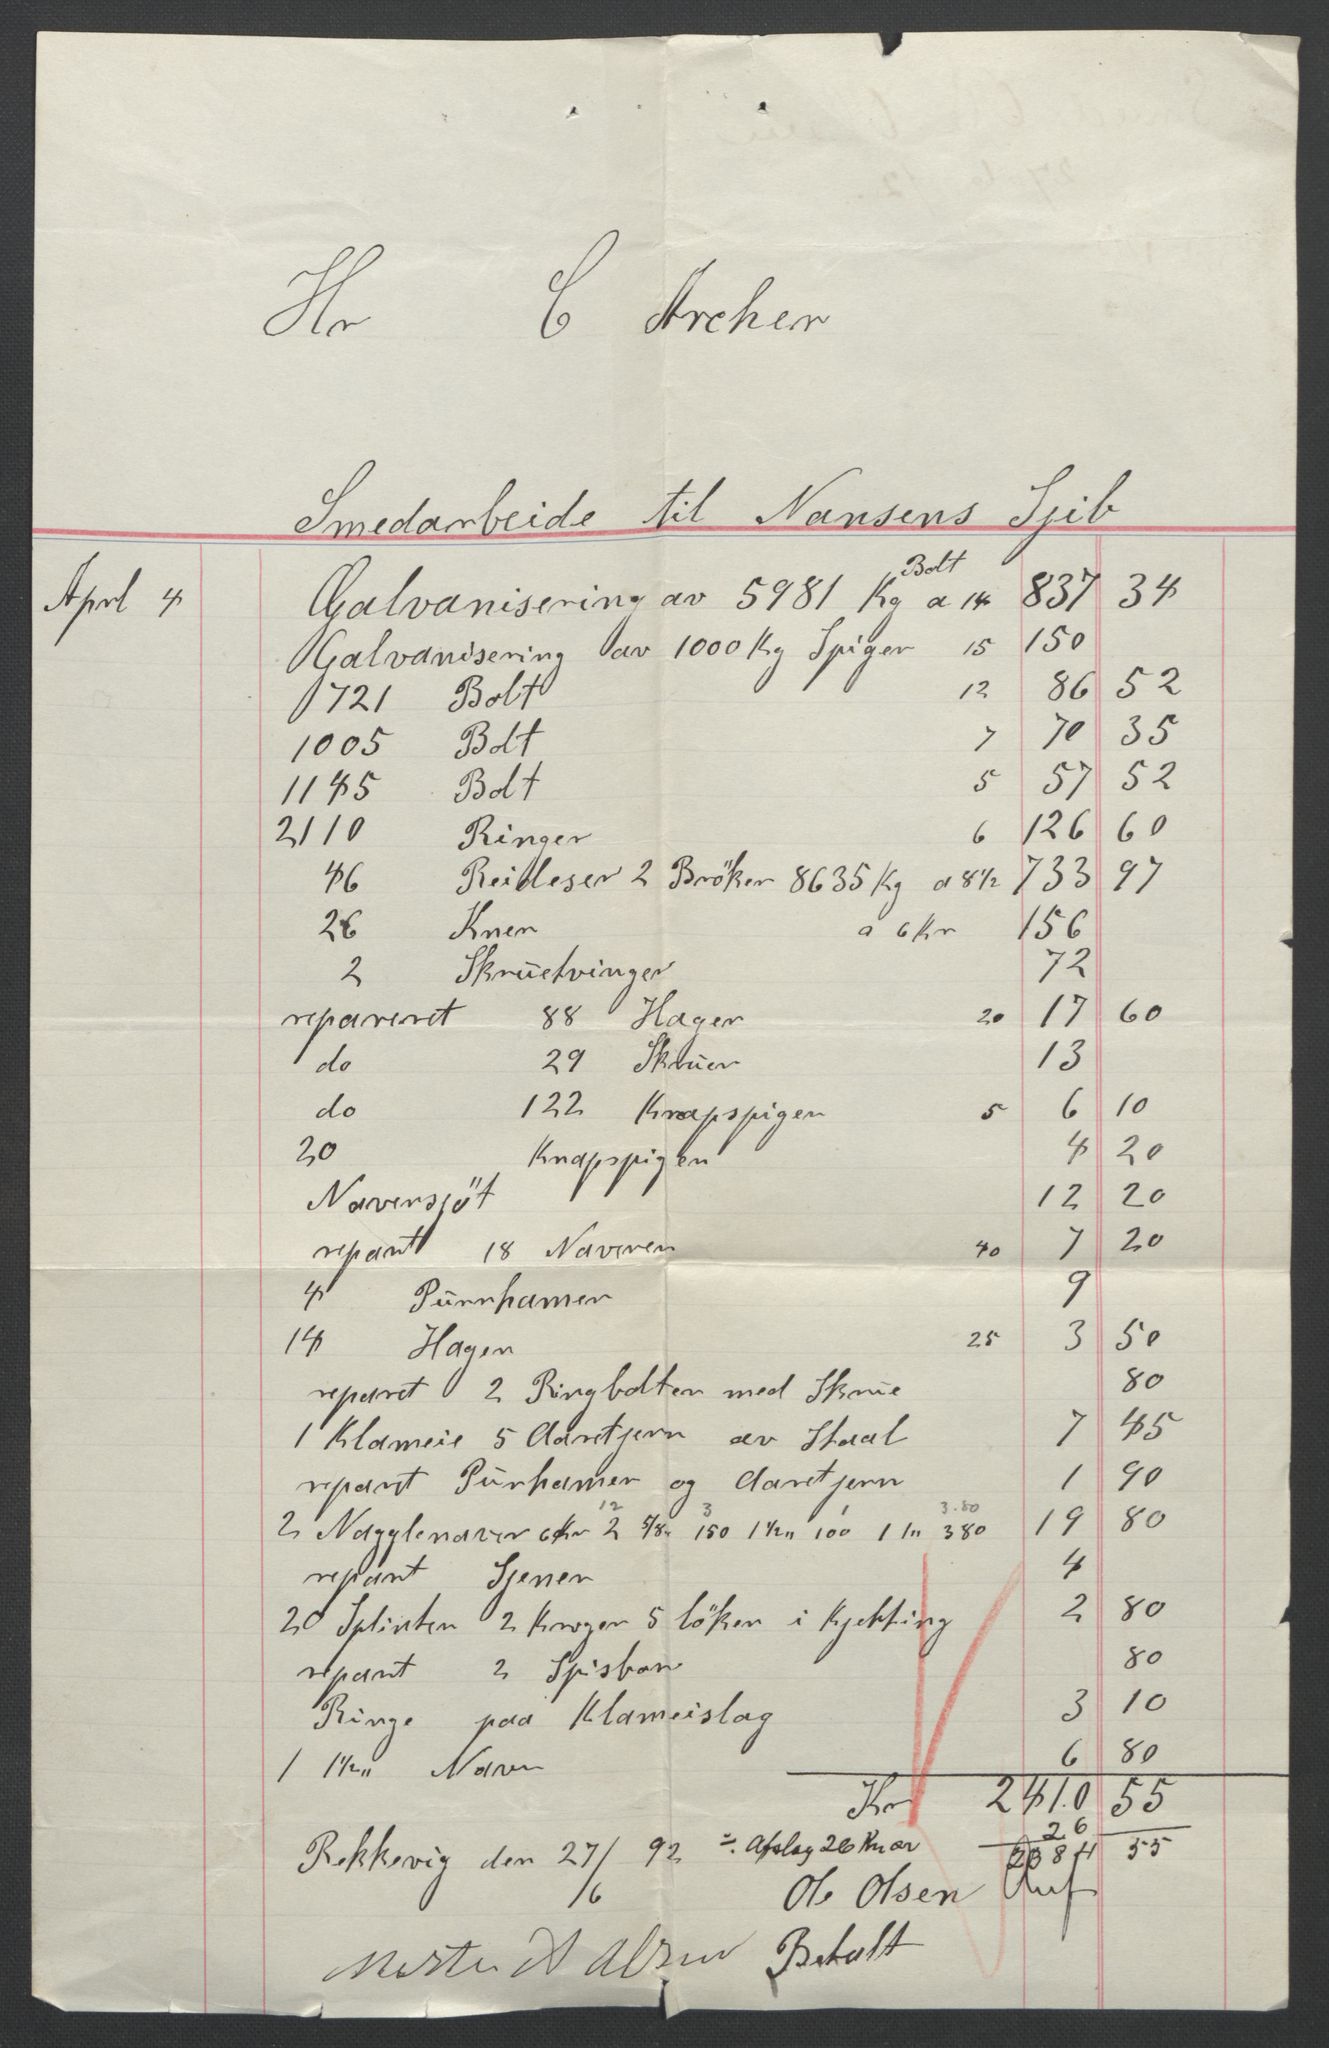 Hr C Archer
Smedarbeide til Nansens Sjib
Aprl 4 Galvanisering av 5981 Kg Bolt a 14 837 34
Galvanisering av 1000 Kg Spiger 15 150
721 Bolt 12 86 52
1005 Bolt 7 70 35
1145 Bolt 5 57 52
2110 Ringer 6 126 60
46 Reideser 2 Bröker 8635 Kg a 8 1/2 733 97
26 Kner a 6 Kr 156
2 Skruetvinger 72
repareret 88 Hager 20 17 60
do 29 Skruer 13
do 122 Knapspiger 5 6 10
20 Knapspiger 4 20
Naversjöt 12 20
repart 18 Naverer 40 7 20
4 Purrhamer 9
14 Hager 25 3 50
reparet 2 Ringbolter med Skrue 80
1 Klameie 5 Daretjern av Staal 7 45
repart Purhamer og daretjern 1 90
12 3 1 3.80
2 Nagglenaver 6 Kr 2 5/8" 150 1 1/2" 100 1 1" 380 19 80
repart Sjener 4
20 Splinter 2 Kroger 5 löker i Kjetting 2 80
repart 2 Spisbor 80
Ringe paa Klameislag 3 10
1 1 1/2" Naver 6 80
Kr 2410 55
26
Rekkevig den 27/6 92 ÷ Afslag 26 Kroner 2384 55
Ole Olsen
Betalt